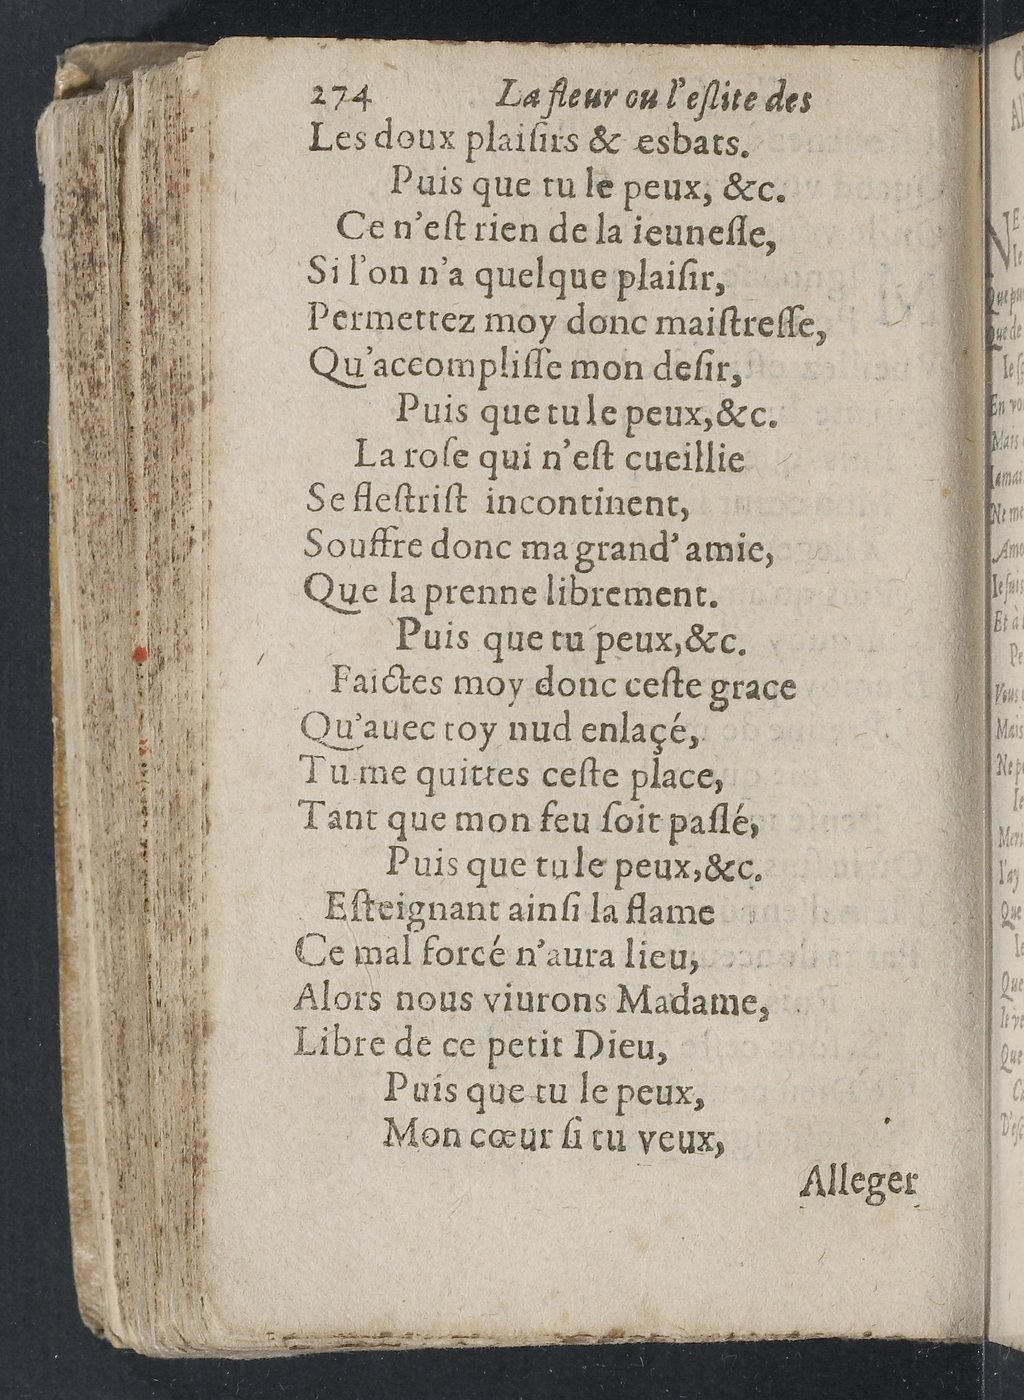 274 La fleur ou l'eſlite des
Les doux plaiſirs & esbats.
Puis que tu le peux, &c.
Ce n'eſt rien de la ieuneſſe,
Si l'on n'a quelque plaiſir,
Permettez moy donc maiſtreſſe,
Qu'accompliſſe mon deſir,
Puis que tu le peux, &c.
La roſe qui n'eſt cueillie
Se fleſtriſt incontinent,
Souffre donc ma grand' amie,
Que la prenne librement.
Puis que tu peux, &c.
Faictes moy donc ceſte grace
Qu'auec toy nud enlaçé,
Tu me quittes ceſte place,
Tant que mon feu ſoit paſſé,
Puis que tu le peux, &c.
Eſteignant ainſi la flame
Ce mal forcé n'aura lieu,
Alors nous viurons Madame,
Libre de ce petit Dieu,
Puis que tu le peux,
Mon cœur ſi tu veux,
Alleger
En vo
Mais
Iamai
Ne me
Amo
Ie ſuis
Et à
Pe
Vous
Mais
Ne p
Ie
Meri
I'ay
Que
Ie
Que
Ie ve
Que